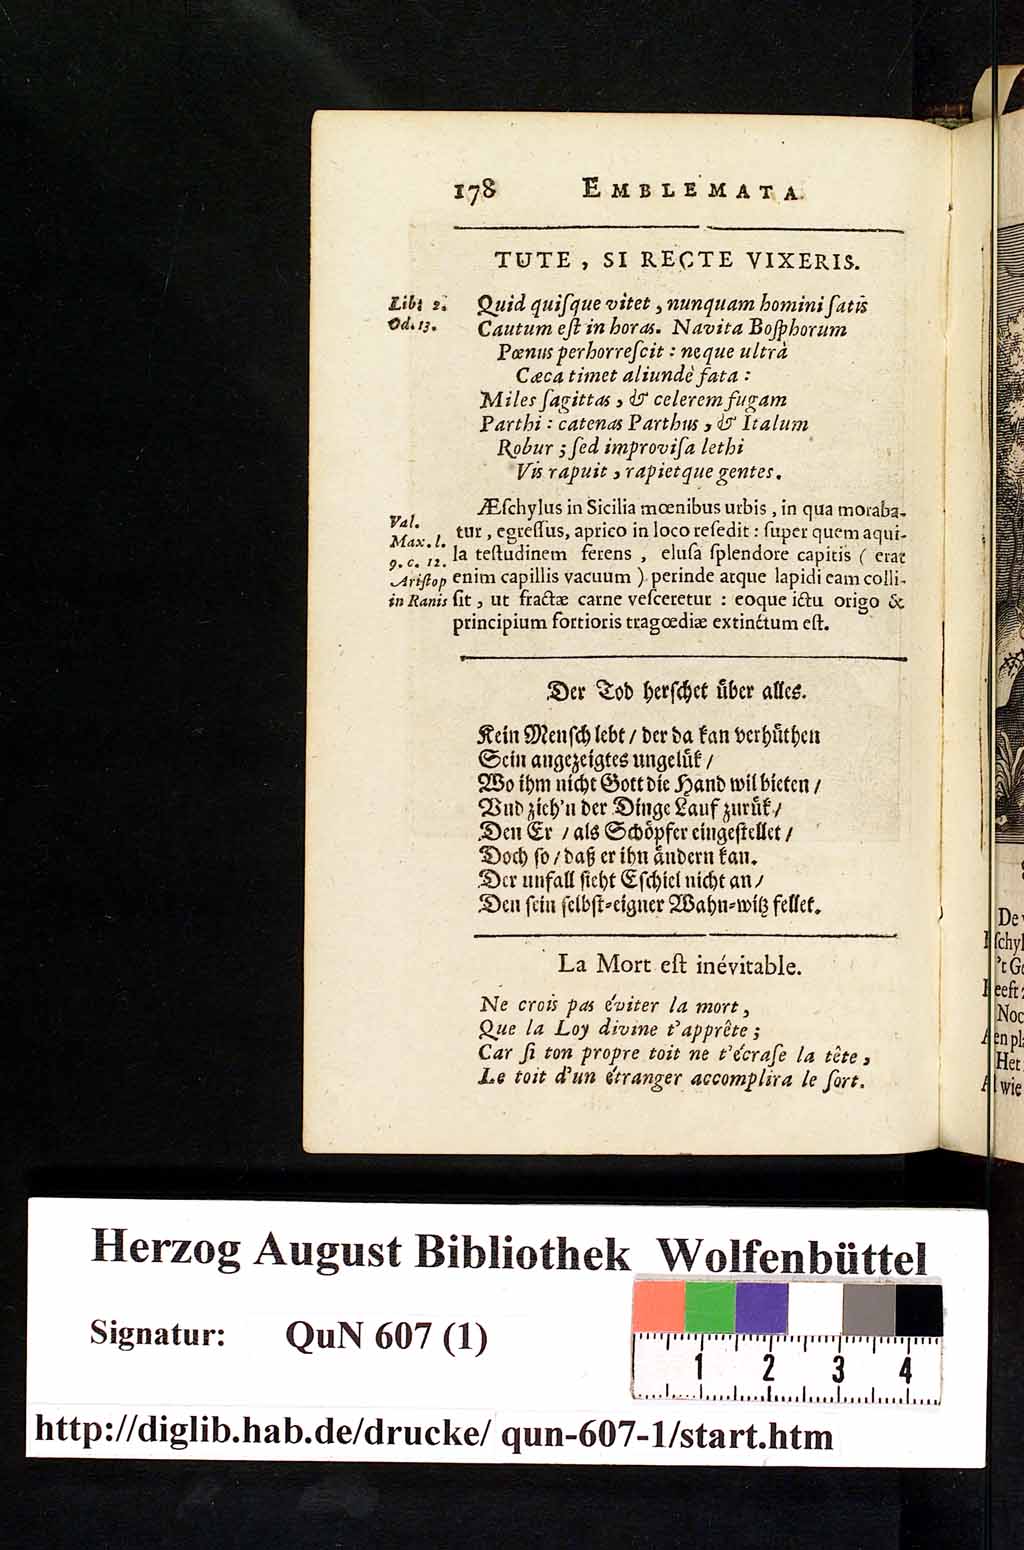 178 EMBLEMATA.
TUTE, SI RECTE VIXERIS.
Lib: 2.
Od. 13.
Quid quiſque vitet, nunquam homini ſatis
Cautum eſt in horas. Navita Boſphorum
Pœnus perhorreſcit: neque ultrà
Cæca timet aliundè fata:
Miles ſagittas, & celerem fugam
Parthi: catenas Parthus, & Italum
Robur; ſed improviſa lethi
Vis rapuit, rapietque gentes.
Val.
Max. l.
9. c. 12.
Ariſtop
in Ranis
Æſchylus in Sicilia mœnibus urbis, in qua moraba-
tur, egreſſus, aprico in loco reſedit: ſuper quem aqui-
la teſtudinem ferens, eluſa ſplendore capitis (erat
enim capillis vacuum) perinde atque lapidi eam colli-
ſit, ut fractæ carne veſceretur: eoque ictu origo &
principium fortioris tragœdiæ extinctum eſt.
Der Tod herſchet über alles.
Kein Menſch lebt / der da kan verhüthen
Sein angezeigtes ungelük /
Wo ihm nicht Gott die Hand wil bieten /
Vnd zieh'n der Dinge Lauf zurük /
Den Er / als Schöpfer eingeſtellet /
Doch ſo / daß er ihn ändern kan.
Der unfall ſieht Eſchiel nicht an /
Den ſein ſelbſt-eigner Wahn-witz fellet.
La Mort eſt inévitable.
Ne crois pas éviter la mort,
Que la Loy divine t'apprête;
Car ſi ton propre toit ne t'écraſe la tête,
Le toit d'un étranger accomplira le ſort.
De
ſchyl
't Ge
eeft
Noc
en pl
Het
wie
Herzog August Bibliothek Wolfenbüttel
Signatur: QuN 607 (1)
1 2 3 4
http://diglib.hab.de/drucke/ qun-607-1/start.htm